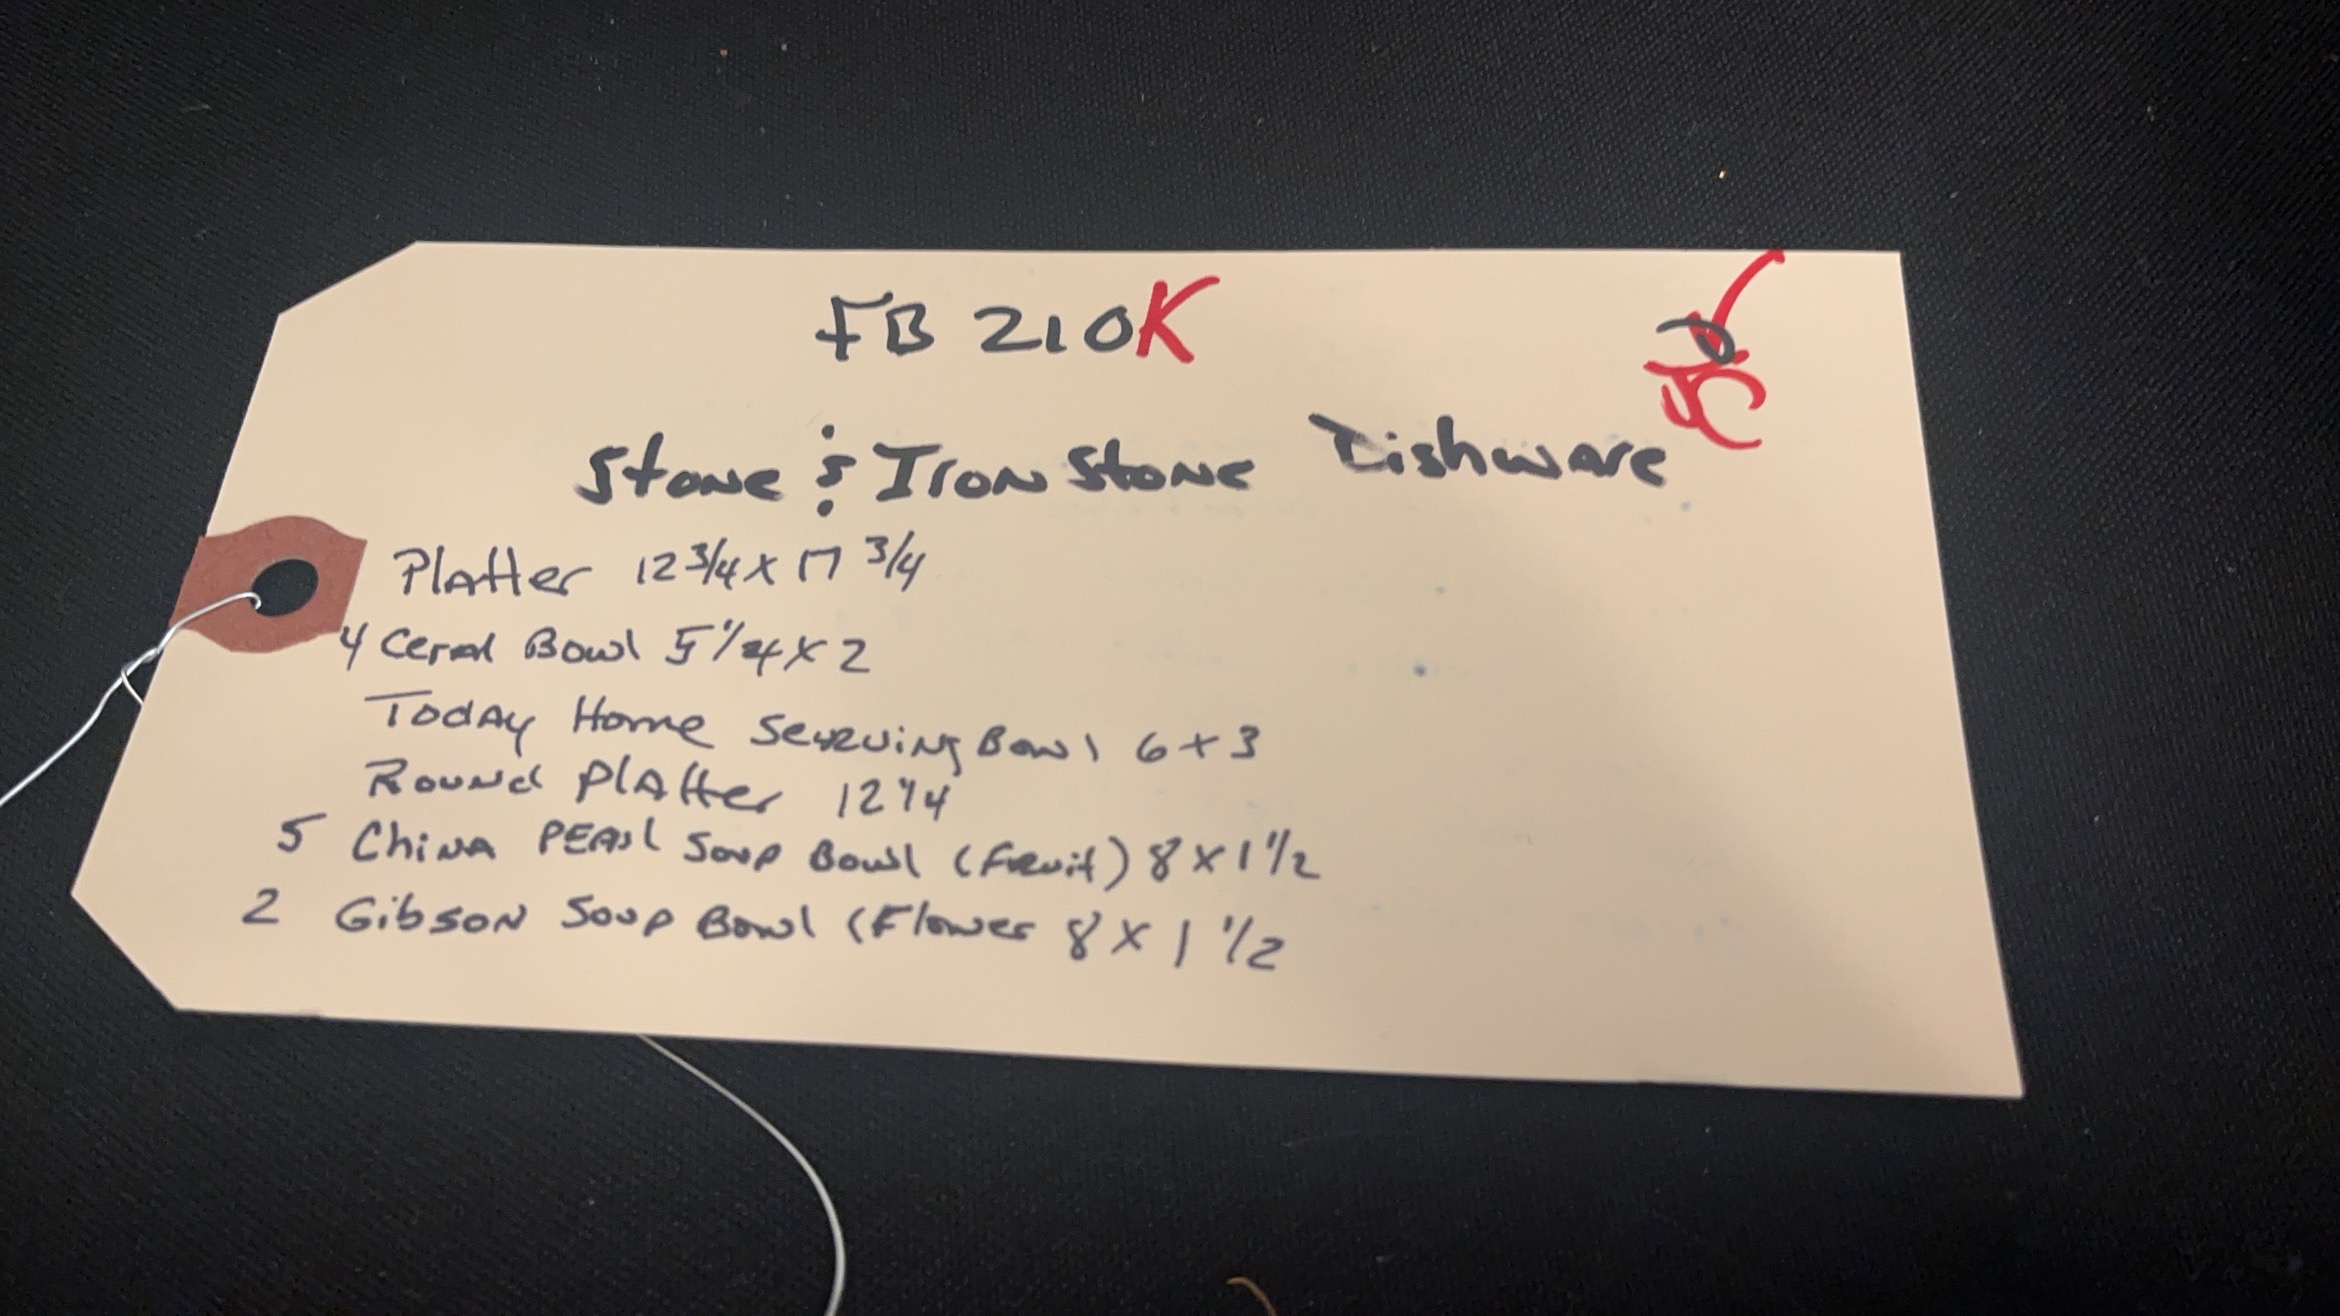 FB 210K
JC
Stone & Iron Stone Dishware
Platter 12 3/4 x 17 3/4
4 Ceral Bowl 5 1/4 x 2
Today Home Serving Bowl 6 x 3
Round Platter 12 1/4
5 China PEARl Soup Bowl (Fruit) 8 x 1 1/2
2 Gibson Soup Bowl (Flower 8 x 1 1/2